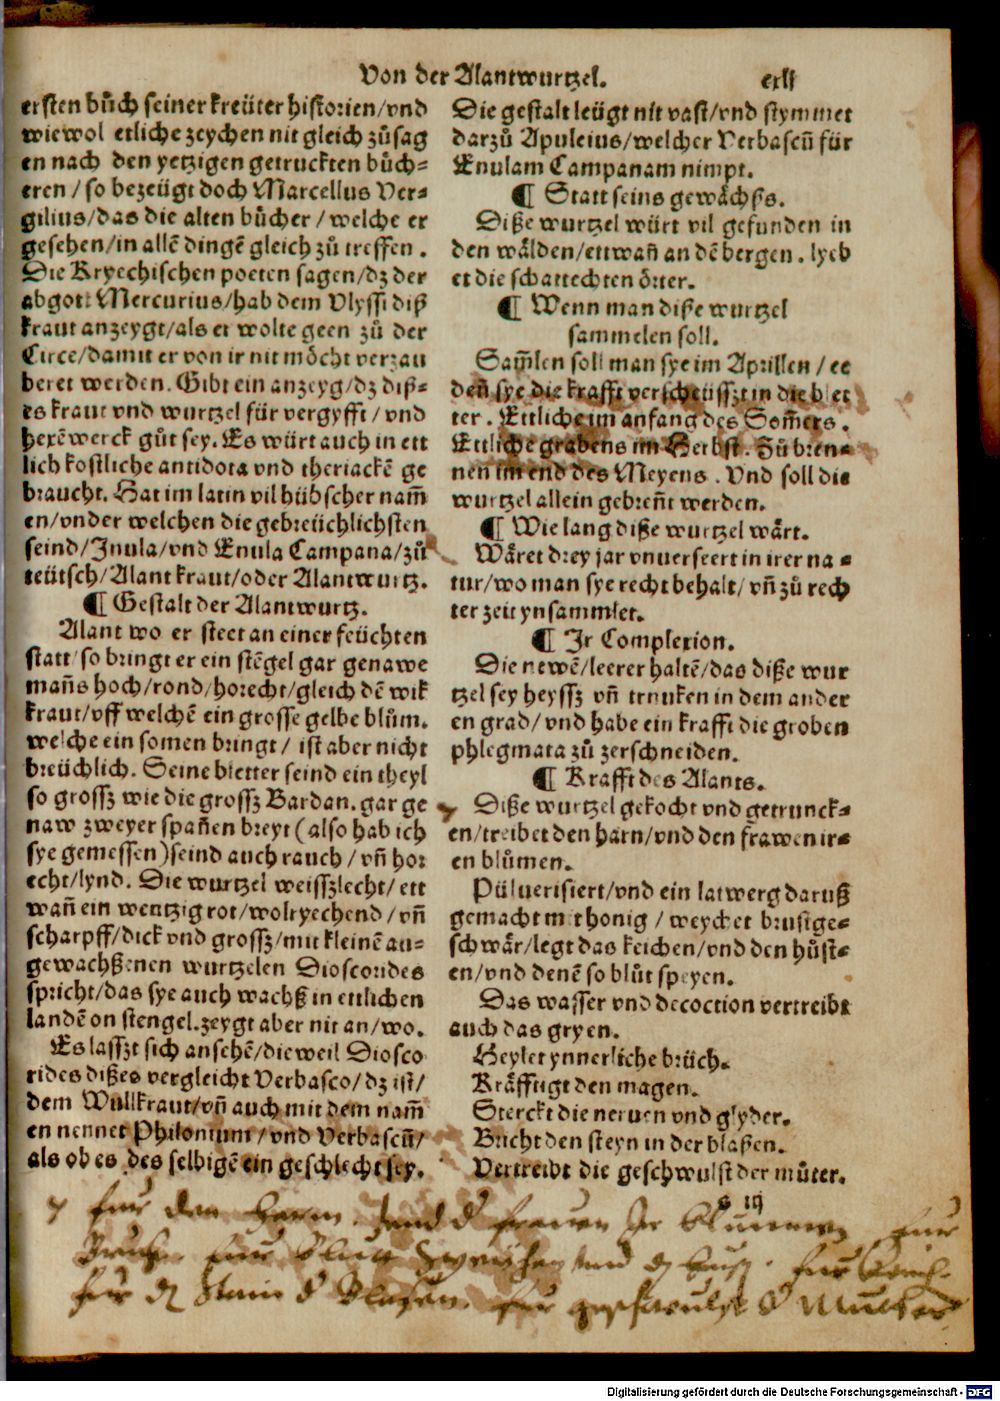 Von der Alantwurtzel. cxli
ersten bůch seiner kreüter historien/vnd
wiewol etliche zeychen nit gleich zůsag
en nach den yetzigen getruckten bůch⸗
eren / so bezeügt doch Marcellus Ver⸗
gilius/das die alten bůcher / welche er
gesehen/in allē dingē gleich zů treffen.
Die Kryechischen poeten sagen/dz der
abgot Mercurius/hab dem Vlyssi diß
kraut anzeygt/als er wolte geen zů der
Circe/damit er von ir nit mȯcht verzau
beret werden. Gibt ein anzeyg/dz diß⸗
es kraut vnd wurtzel für vergyfft / vnd
hexēwerck gůt sey. Es würt auch in ett
lich kostliche antidota vnd theriackē ge
braucht. Hat im latin vil hübscher nam̄
en/vnder welchen die gebreüchlichsten
seind/Inula/vnd Enula Campana/zů
teütsch/Alant kraut/oder Alantwurtz.
¶ Gestalt der Alantwurtz.
Alant wo er steet an einer feüchten
statt/so bringt er ein stēgel gar genawe
mañs hoch/rond/horecht/gleich dē wik
kraut/vff welchē ein grosse gelbe blům.
welche ein somen bringt / ist aber nicht
breüchlich. Seine bletter seind ein theyl
so grossz wie die grossz Bardan. gar ge
naw zweyer spañen breyt (also hab ich
sye gemessen) seind auch rauch / vñ hor
echt/lynd. Die wurtzel weisszlecht/ ett
wañ ein wentzig rot/wolryechend / vñ
scharpff/dick vnd grossz/mit kleinē an⸗
gewachßenen wurtzelen Dioscorides
spricht/das sye auch wachß in ettlichen
landē on stengel. zeygt aber nit an/wo.
Es lasszt sich ansehē/die weil Diosco
rides dißes vergleicht Verbasco/dz ist/
dem Wullkraut/vñ auch mit dem nam̄
en nennet Philonium/vnd Verbascū/
als ob es des selbigē ein geschlecht sey.
Die gestalt leügt nit vast/vnd stymmet
darzů Apuleius/welcher Verbascū für
Enulam Campanam nimpt.
¶ Statt seins gewächßs.
Diße wurtzel würt vil gefunden in
den wälden/ettwañ an dē bergen. lyeb
et die schattechten ȯrter.
¶ Wenn man diße wurtzel
sammelen soll.
Sam̄len soll man sye im Aprillen / ee
deñ sye die krafft verscheüsszt in die blet
ter. Ettliche im anfang des Som̄ers.
Ettliche grabens im Herbst. Zů bren⸗
nen im end des Meyens. Vnd soll die
wurtzel allein gebreñt werden.
¶ Wie lang diße wurtzel wärt.
Wäret drey jar vnuerseert in irer na⸗
tur/wo man sye recht behalt/ vñ zů rech
ter zeit ynsammlet.
¶ Ir Complexion.
Die newē/leerer haltē/das diße wur
tzel sey heyssz vñ trucken in dem ander
en grad/ vnd habe ein krafft die groben
phlegmata zů zerschneiden.
¶ Krafft des Alants.
Diße wurtzel gekocht vnd getrunck⸗
en/treibet den harn/vnd den frawen ir⸗
en blůmen.
Pülverisiert/vnd ein latwerg daruß
gemacht mit honig / weychet brustge⸗
schwär/legt das keichen/vnd den hůst⸗
en/vnd denē so blůt speyen.
Das wasser vnd decoction vertreibt
auch das gryen.
Heylet ynnerliche brüch.
Kräfftigt den magen.
Sterckt die neruen vnd glyder.
Bricht den steyn in der blaßen.
Vertreibt die geschwulst der můter.
für den Harn. Vnd d frauen Ir Bluomen, für
für Blutt Speyhen vnd
für Stain d Blasen. für geschwulst d Mutter
Digitalisierung gefördert durch die Deutsche Forschungsgemeinschaft - DFG